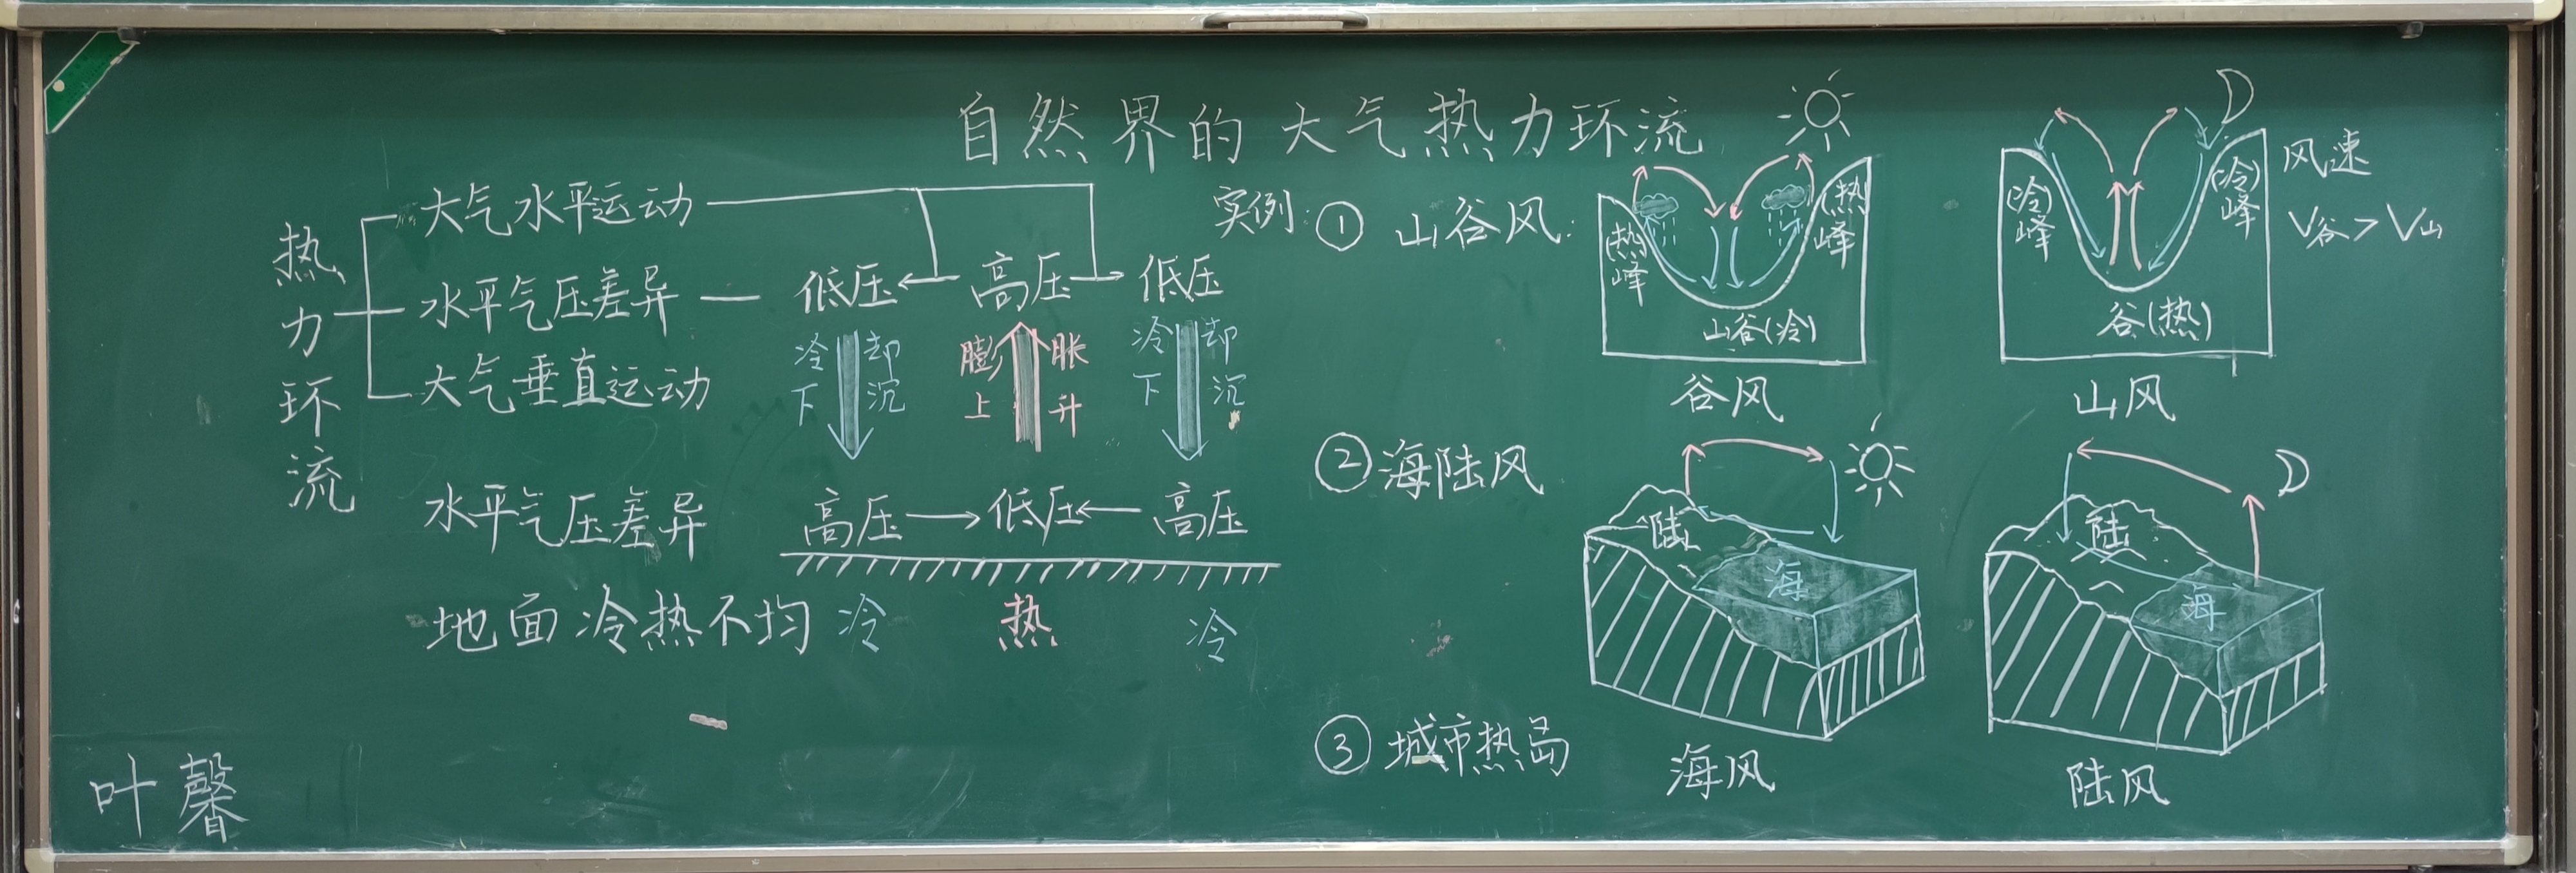 自然界的大气热力环流
热力环流
大气水平运动
水平气压差异
低压 高压 低压
冷却下沉
膨胀上升
冷却下沉
大气垂直运动
水平气压差异
高压 低压 高压
地面冷热不均
冷 热 冷
叶馨
实例:
① 山谷风:
(热)峰
(热)峰
山谷(冷)
谷风
(冷)峰
(冷)峰
谷(热)
山风
风速
V谷>V山
② 海陆风
陆
海
海风
陆
海
陆风
③ 城市热岛